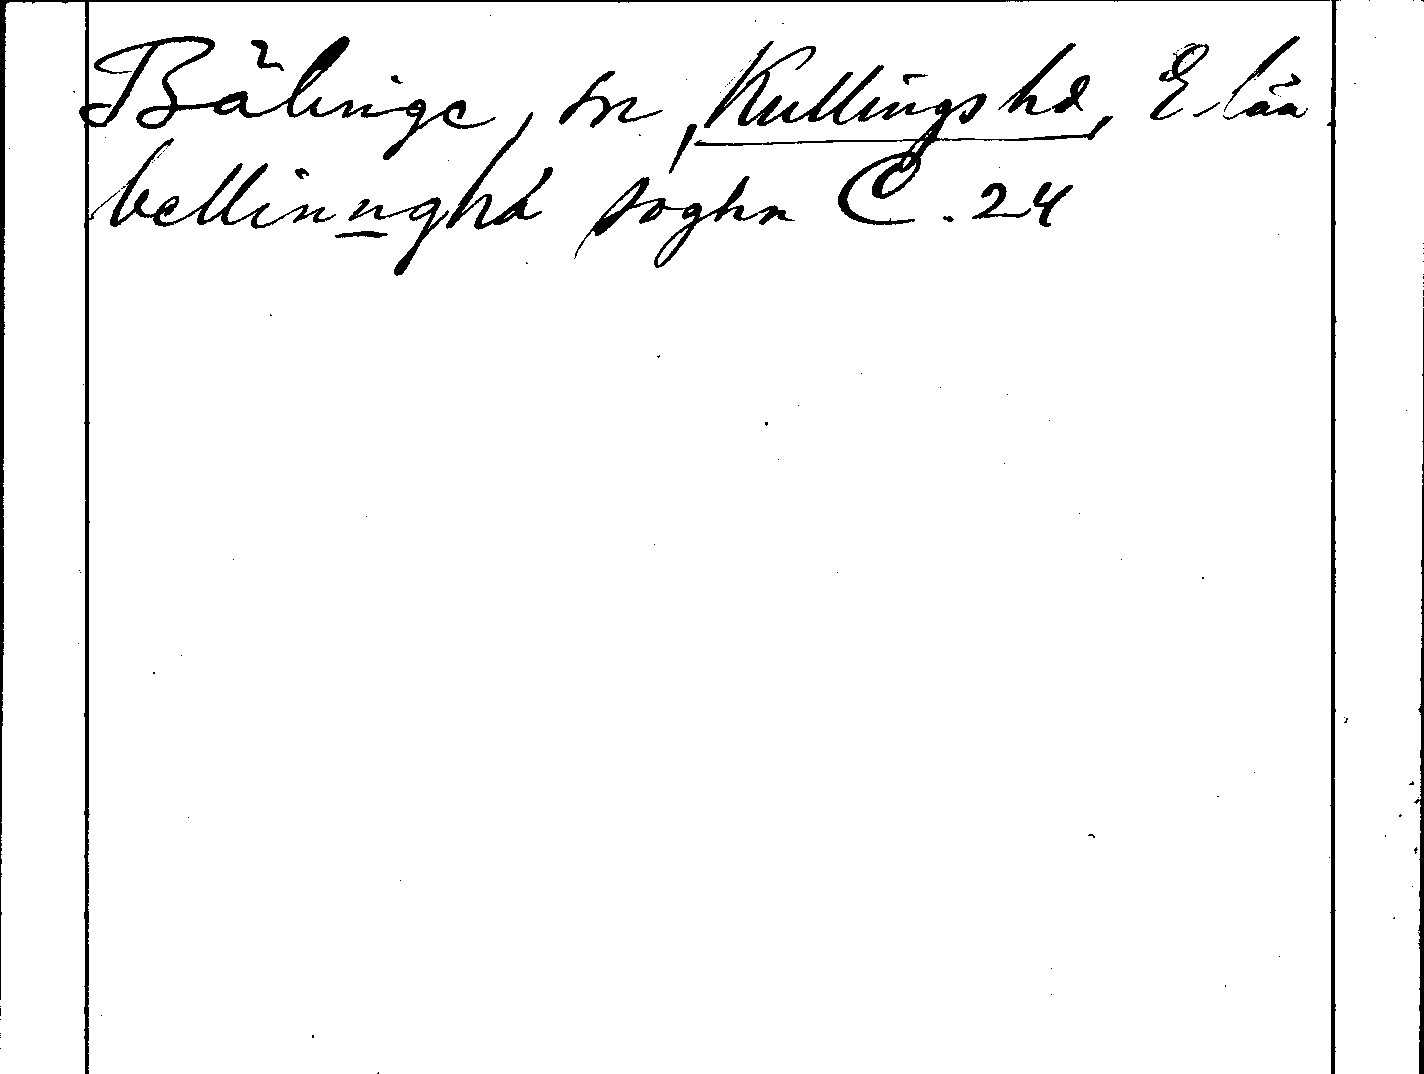 Bälinge, sn, Kullings hd, E län
bellinnghá soghn C. 24